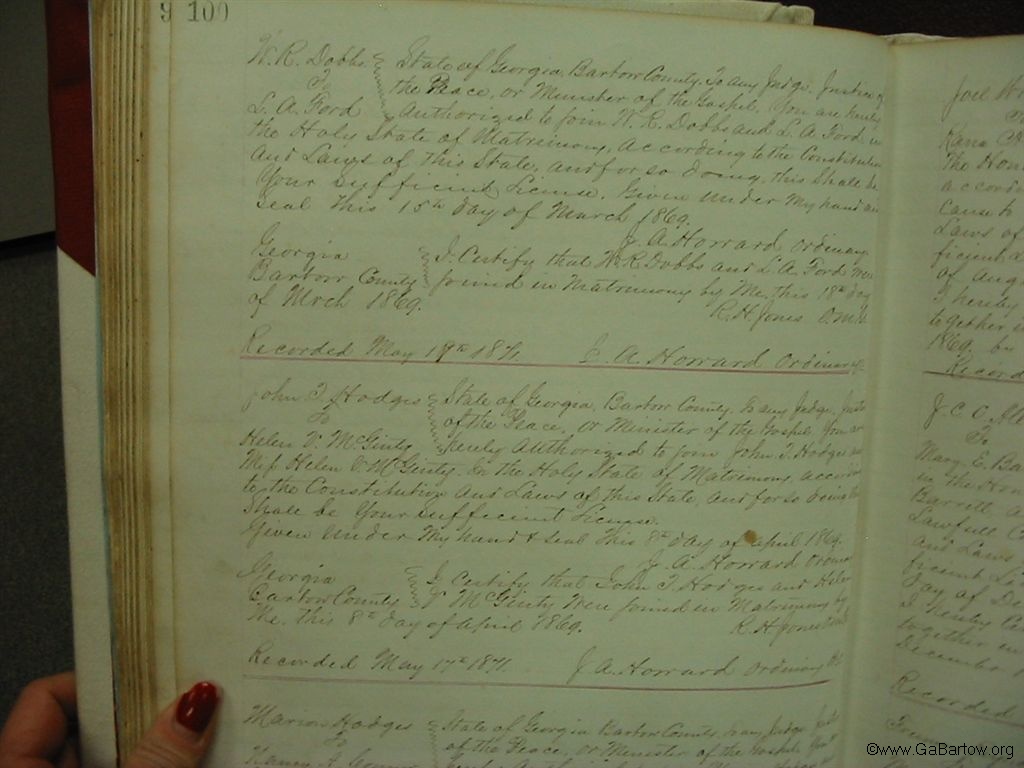 9 100
W. R. Dobbs State of Georgia, Bartow County. To any Judge, Justice of
To the Peace, or Minister of the Gospel, You are hereby
L. A. Ford Authorized to join W. R. Dobbs and L. A. Ford in
the Holy State of Matrimony, according to the Constitution
and Laws of this State, and for so doing, this Shall be
Your Sufficient License. Given under My hand and
Seal this 15th day of March 1869.
J. A. Howard Ordinary
Georgia I Certify that W. R. Dobbs and L. A. Ford were
Bartow County joined in Matrimony by Me, this 18th day
of Mrch 1869. R. H. Jones O.M.G.
Recorded May 17th 1871 J. A. Howard Ordinary
John T. Hodges State of Georgia, Bartow County. To any Judge, Justice
To of the Peace, or Minister of the Gospel, You are
Helen V. McGinty hereby authorized to join John T. Hodges and
Miss Helen V. McGinty in the Holy State of Matrimony, according
to the Constitution and Laws of this State, and for so doing this
Shall be Your Sufficient License.
Given Under My hand & seal this 8th day of April 1869.
J. A. Howard Ordinary
Georgia I Certify that John T. Hodges and Helen
Bartow County V McGinty Were joined in Matrimony by
Me. this 8th day of April 1869. R. H. Jones
Recorded May 17th 1871. J. A. Howard Ordinary
Marion Hodges State of Georgia Bartow County, To any Judge Just
To of the Peace, or Minister of the Gospel You
Joel W
To
the Hon
accord
cause to
Laws of
ficient L
of Aug
I hereby
together in
1869. by
Record
J. C. C. Al
To
Mary E. Ba
in the Hon
Barrett a
Lawfull C
and Laws
ficient Li
day of De
I hereby
together in
December
Recorded
©www.GaBartow.org